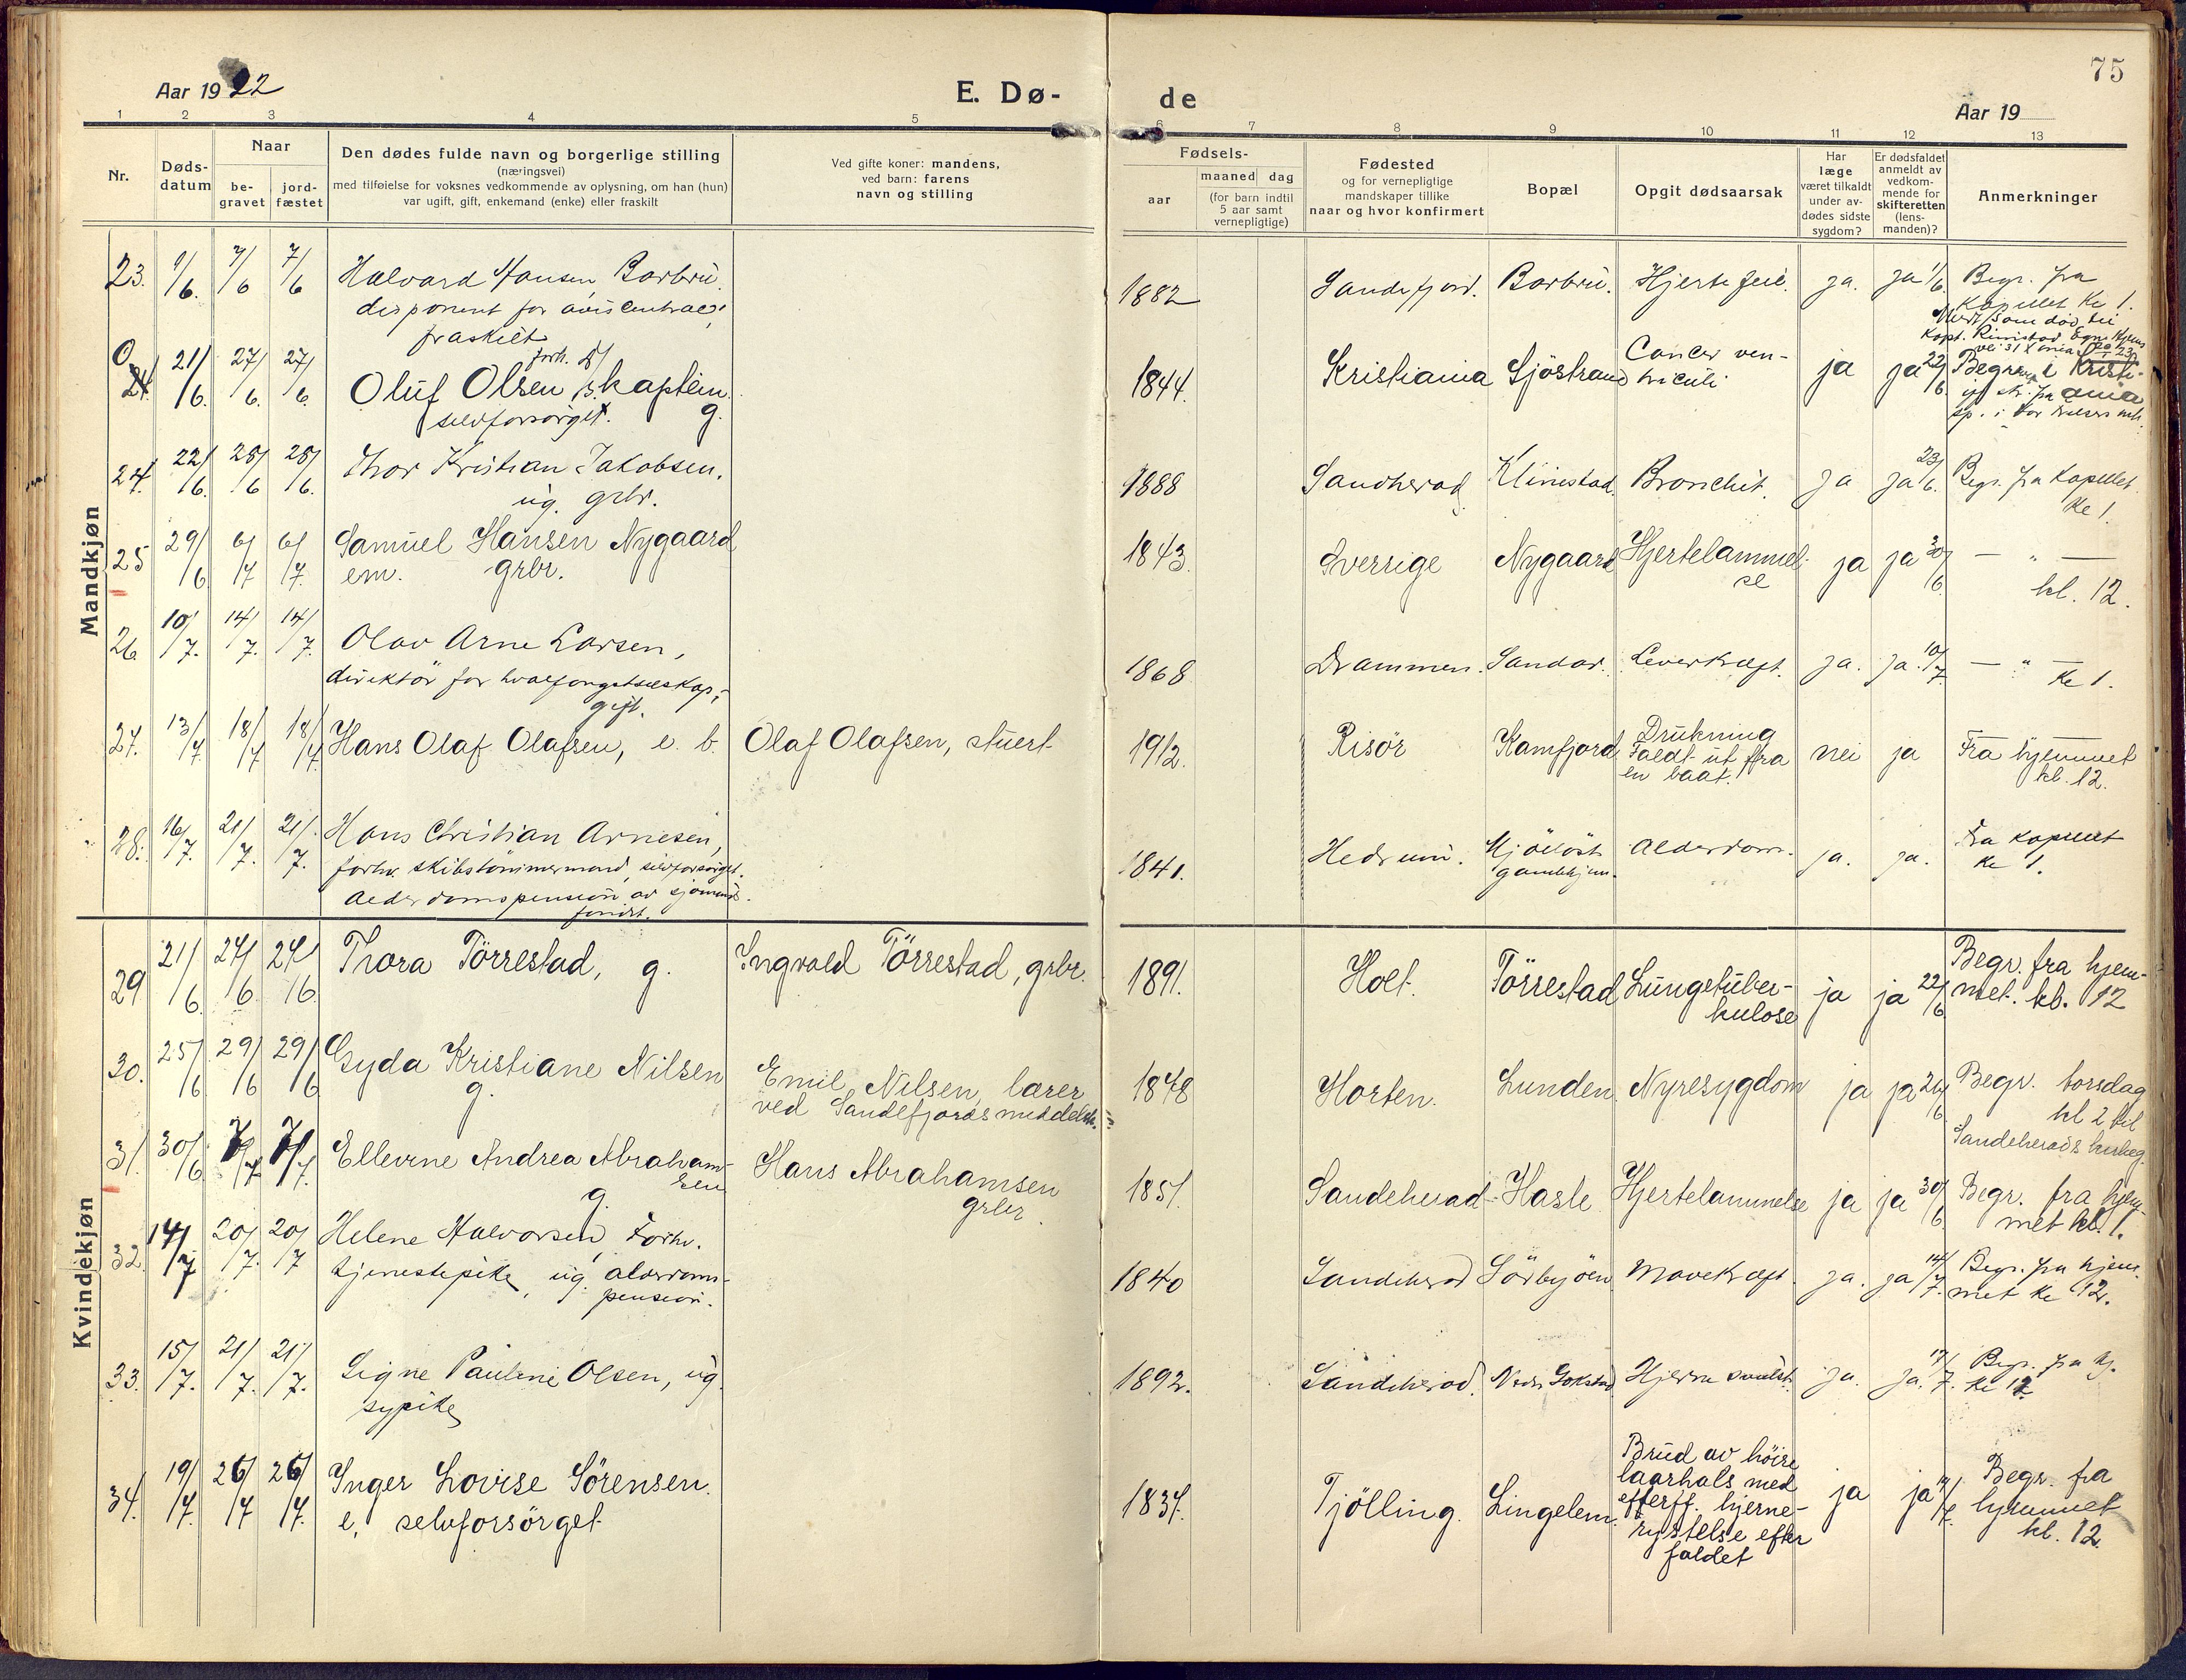 75
Aar 1922
E. Dø-
de
Aar 19
1 2 3 4 5 6 7 8 9 10 11 12 13
Nr.
Døds-
datum
Naar
be-
gravet
jord-
fæstet
Den dødes fulde navn og borgerlige stilling
(næringsvei)
med tilføielse for voksnes vedkommende av oplysning, om han (hun)
var ugift, gift, enkemand (enke) eller fraskilt
Ved gifte koner: mandens,
ved barn: farens
navn og stilling
Fødsels-
aar
maaned dag
(for barn indtil
5 aar samt
vernepligtige)
Fødested
og for vernepligtige
mandskaper tillike
naar og hvor konfirmert
Bopæl
Opgit dødsaarsak
Har
læge
været tilkaldt
under av-
dødes sidste
sygdom?
Er dødsfaldet
anmeldt av
vedkom-
mende for
skifteretten
(lens-
manden)?
Anmerkninger
Mandkjøn
23. 1/6. 7/6 7/6 Halvard Hansen Barbru. 1882 Sandefjord. Barbru. Hjertefeil. ja. ja 1/6 Begr. fra
disponent for aviscentral, kapellet kl 1.
fraskilt
0 21/6. 27/6. 27/6. forh.
Oluf Olsen, skaptein. g. 1844. Kristiania Sjöstrand Cancer ven-
triculi ja ja 22/6. Begr. Kristi-
selvforsörget. ania
24. 22/6. 28/6 28/6. Thor Kristian Jakobsen. 1888 Sandherad Klinestad. Bronchit. ja ja 23/6. Begr. fra kapellet
ug. grbr. kl 1.
25 29/6 6/7 6/7. Samuel Hansen Nygaard 1843. Sverrige Nygaard Hjertelammel-
se ja ja 30/6. — " —
em. grbr. kl. 12.
26. 10/7. 14/7. 14/7. Olav Arne Larsen, 1868 Drammen. Sandar. Leverkræft. ja. ja. 10/7. — " —
direktör for hvalfangstselskap, kl 1.
gift.
27. 13/7 18/7 18/7. Hans Olaf Olafsen, e. b. Olaf Olafsen, stuert 1912. Risör Kamfjord Drukning
Faldt ut fra
en baat. nei ja Fra hjemmet
kl. 12.
28. 16/7. 21/7. 21/7. Hans Christian Arnesen, 1841. Hedrum. Mjöllöst
gamlehjem. Alderdom. ja. ja. Fra kapellet
kl 1.
forhv. skibstömmermand, selvforsörget.
Alderdomspension av sjömands-
fondet.
Kvindekjøn
29 21/6. 24/6. 24/6 Thora Törrestad, g. Ingvald Törrestad, grbr. 1891. Holt. Törrestad Lungetuber-
kulose ja ja 22/6 Begr. fra hjem-
met. kl. 12
30. 25/6 29/6 29/6 Gyda Kristiane Nilsen
g. Emil Nilsen, lærer
ved Sandefjords middelsk. 1848 Horten. Lunden. Nyresygdom ja ja 26/6 Begr. torsdag
kl 2 til
Sandeherads
31. 30/6 7/7 7/7. Ellevine Andrea Abraham-
sen
g. Hans Abrahamsen
grbr. 1851. Sandeherad Hasle Hjertelammelse ja ja 30/6. Begr. fra hjem-
met kl. 1.
32. 14/7 20/7. 20/7 Helene Halvorsen, Forhv.
tjenestepike, ug. alderdoms-
pension. 1840 Sandeherad Sörbyöen Mavekræft. ja. ja 14/7. Begr. fra hjem-
met kl 12.
33. 15/7. 21/7. 21/7. Signe Pauline Olsen, ug.
sypike 1892. Sandeherad. Nedr Gokstad Hjerne svulst. ja. ja. 17/7. Begr. fra hj.
kl 12
34. 19/7. 26/7 26/7. Inger Lovise Sörensen.
e. selvforsörget 1837. Tjölling. Lingelem. Brud av höire
laarhals med
efterff. hjerne-
rystelse efter
faldet ja ja Begr. fra
hjemmet
kl. 12.